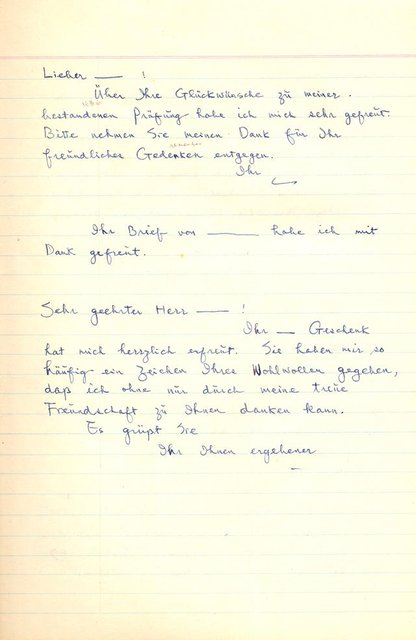 Lieber — !
Über Ihre Glückwünsche zu meiner
bestandenen Prüfung habe ich mich sehr gefreut.
Bitte nehmen Sie meinen Dank für Ihr
freundliches Gedenken entgegen.
Ihr
Ihr Brief von — habe ich mit
Dank gefreut.
Sehr geehrter Herr — !
Ihr — Geschenk
hat mich herzlich erfreut. Sie haben mir so
häufig ein Zeichen Ihres Wohlwollen gegeben,
daß ich ohne nur durch meine treue
Freundschaft zu Ihnen danken kann.
Es grüßt Sie
Ihr Ihnen ergebener